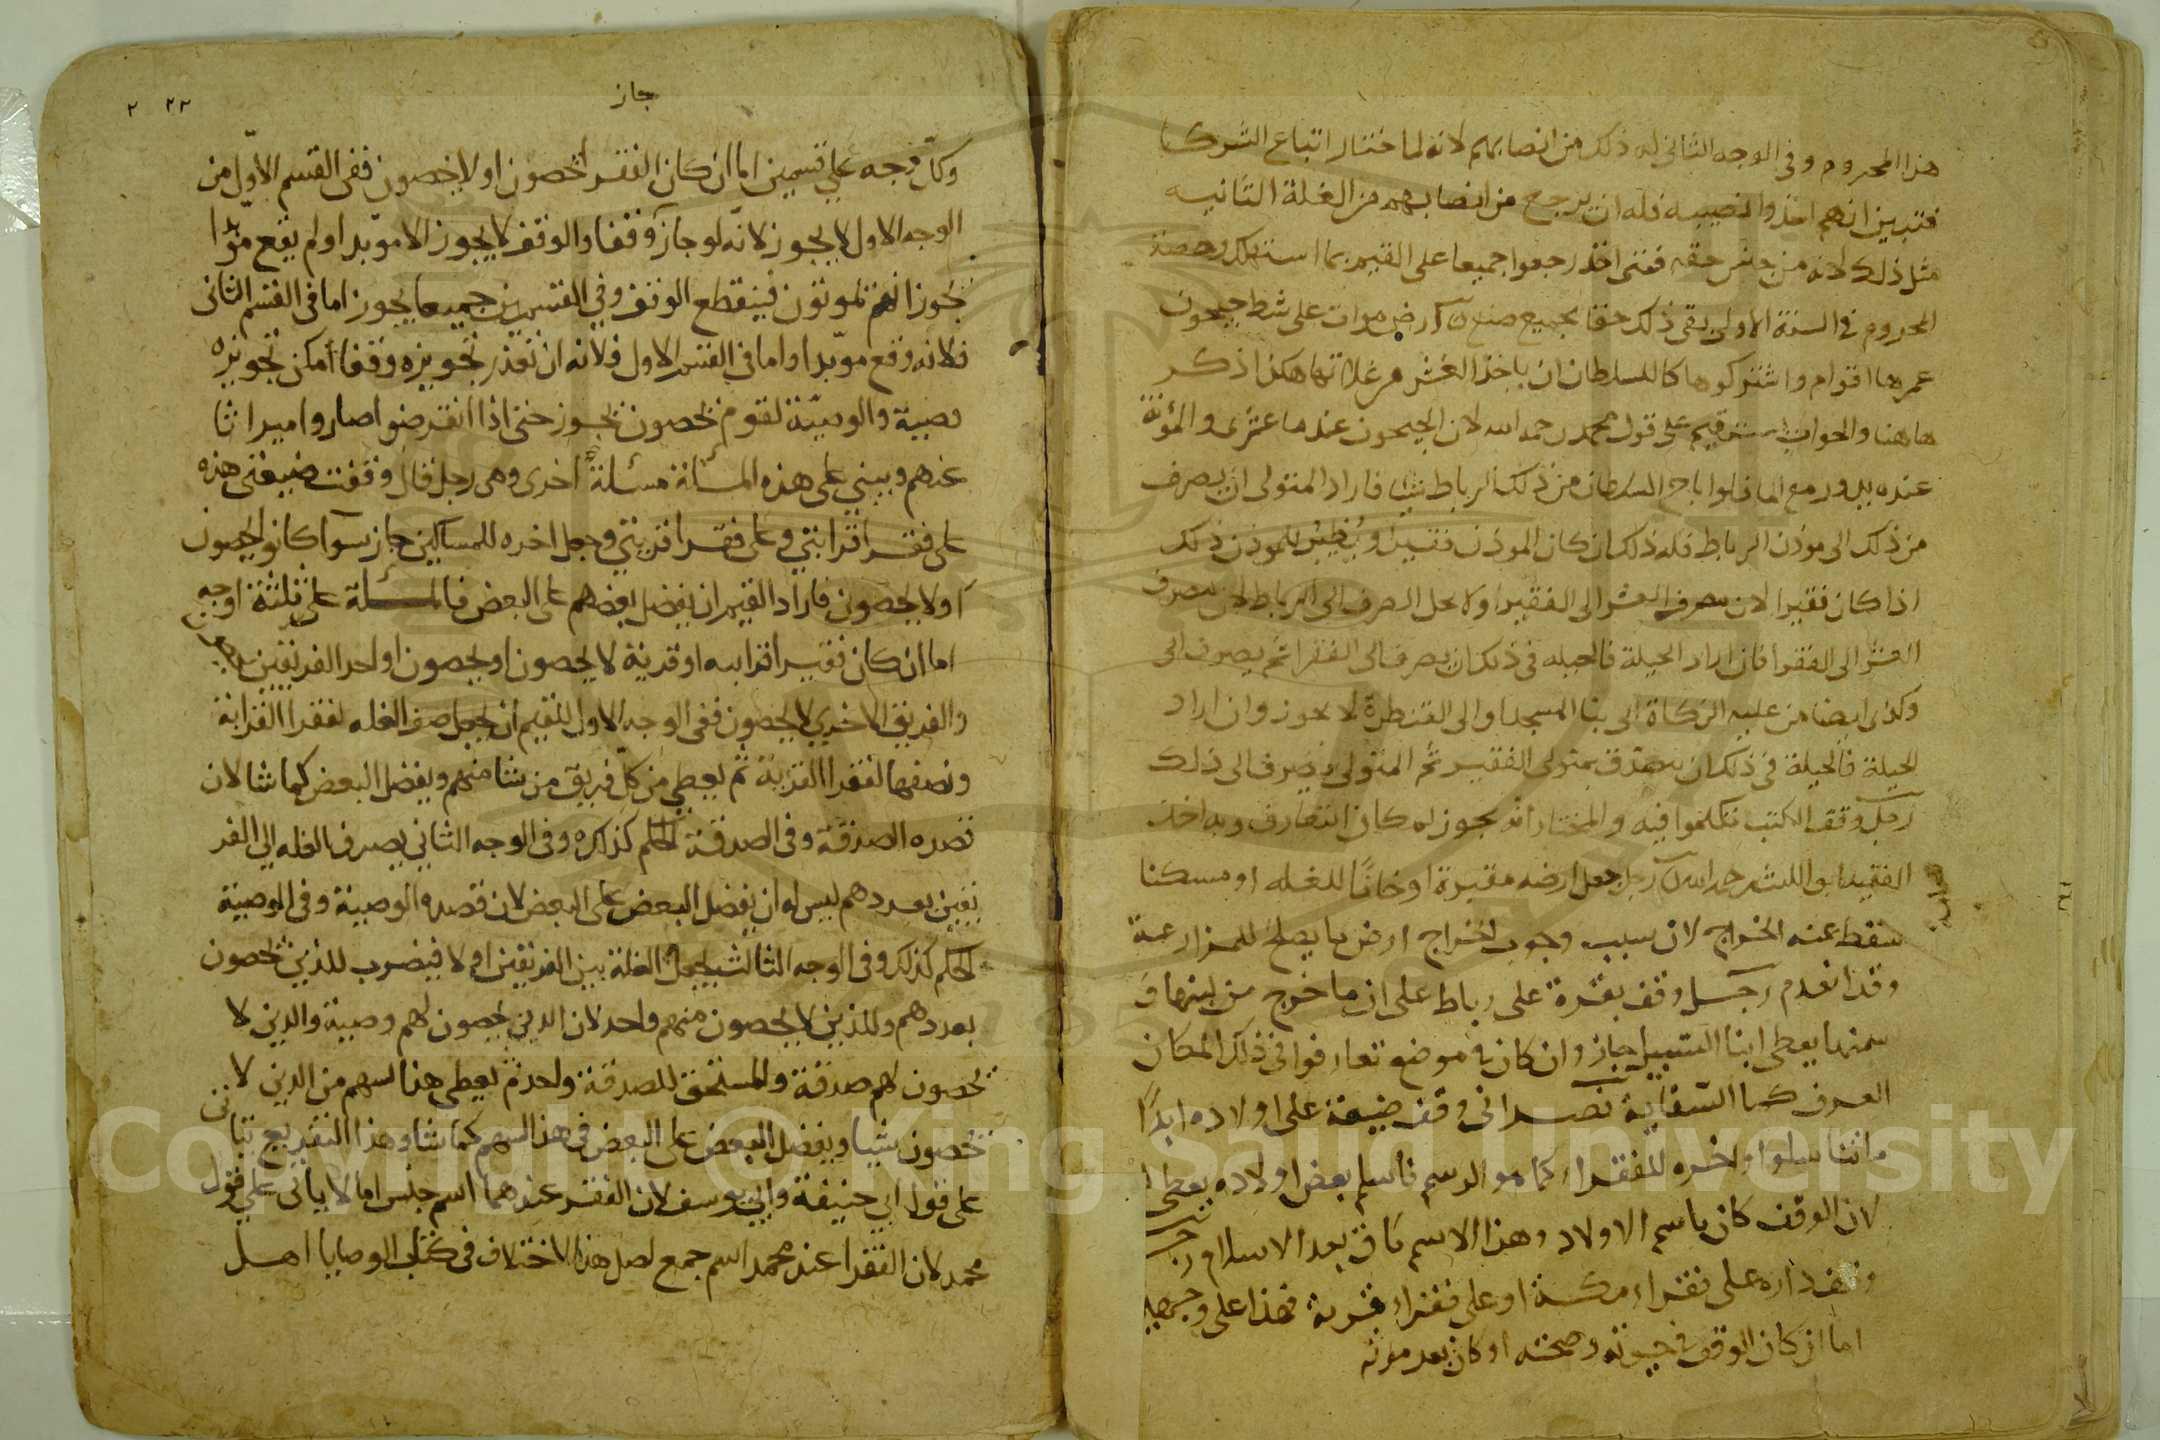 هذا المحروم وفى الوجه الثانى له ذلك من انصبائهم لانه لما اختار اتباع الشركا
فتبين انهم اخذوا نصيبه فله ان يرجع من انصبائهم من الغلة الثانيه
مثل ذلك لانه من جنس حقه فمتى اخذ رجعوا جميعا على القيم بما استهلك حصة
المحروم فى السنة الاولى بقى ذلك حقا لجميع ارض موات على شط جيحون
عمرها اقوام واشتركوها كا للسلطان ان ياخذ العشر من غلاتها هكذا ذكر
هاهنا والجواب مستقيم على قول محمد رحمه الله لان الجيحون عنده ما عشرى والمؤنة
عنده يدور مع الما فلو اباح السلطان من ذلك الرباط شيا فاراد المتولى ان يصرف
من ذلك الى موذن الرباط فله ذلك ان كان الموذن فقيرا للموذن ذلك
اذا كان فقيرا لان يصرف العشر الى الفقير ولا يحل الصرف الى الرباط لان يصرف
العشر الى الفقرا فان اراد الحيلة فالحيله فى ذلك ان يصرف الى الفقرا ثم يصرف الى
وكذى ايضا من عليه الزكاة الى بنا المسجد او الى القنطرة لا يجوز وان اراد
الحيلة فالحيلة فى ذلك ان يتصدق بمتولى الفقير ثم المتولى يصرف الى ذلك
رجل وقف الكتب تكلموا فيه والمختار انه يجوز لمكان التعارف وبه اخذ
الفقيه ابو الليث رحمه الله رجل جعل ارضه مقبرة او خانا للغله او مسكنا
سقط عنه الخراج لان سبب وجوب الخراج ارض يصلح للمزارعة
وقد انعدم رجل وقف بقرة على رباط على ان ما خرج من لبنها و
سمنها يعطى ابنا السبيل جاز وان كان فى موضع تعارفوا فى ذلك المكان
العرف كما السقاية نصرانى وقف ضيعة على اولاده ابدا
ما تناسلوا واخره للفقراء كما هو الرسم فاسلم بعض اولاده يعطى
لان الوقف كان باسم الاولاد وهذا الاسم باق بعد الاسلام رجل
وقف داره على فقراء مكة او على فقراء قرية فهذا على وجهين
اما ان كان الوقف فى حيوته وصحته او كان بعد موته
جاز
٢٢ ٢
وكل وجه على قسمين اما ان كان الفقرا يحصون او لا يحصون ففى القسم الاول من
الوجه الاول لا يجوز لانه لو جاز وقفا والوقف لا يجوز الا موبدا ولم يقع موبدا
لجوز انهم يموتون فينقطع الوقف وفى القسمين جميعا يجوز اما فى القسم الثانى
فلانه وقع موبدا واما فى القسم الاول فلانه ان تعذر تجويزه وقفا امكن تجويزه
وصية والوصية لقوم يحصون تجوز حتى اذا انقرضوا صاروا ميراثا
عنهم ويبنى على هذه المسئلة مسئلة اخرى وهى رجل قال وقفت ضيعتى هذه
على فقرا قرابتى وعلى فقرا قريتى وجعل اخره للمساكين جاز سوا كانوا يحصون
او لا يحصون فاراد القيم ان يفضل بعضهم على البعض فالمسئلة على ثلثة اوجه
اما ان كان فقير اقرابته او قرية لا يحصون او يحصون او احد الفريقين يحصون
والفريق الاخرى لا يحصون ففى الوجه الاول للقيم ان يجعل نصف الغله لفقرا القرابة
ونصفها لفقرا القرية ثم يعطى من كل فريق من شا منهم ويفضل البعض كما شا لان
قصده الصدقة وفى الصدقة الحكم كذلك وفى الوجه الثانى يصرف الغله الى الفر
يقين بعددهم ليس له ان يفضل البعض على البعض لان قصده الوصية وفى الوصية
الحكم كذلك وفى الوجه الثالث يجعل الغلة بين الفريقين او لا فيضرب للذين يحصون
بعددهم وللذين لا يحصون منهم واحد لان الذين يحصون لهم وصية والذين لا
يحصون لهم صدقة والمستحق للصدقة واحد ثم يعطى هذا لسهم من الذين لا
يحصون شيا ويفضل البعض على البعض فى هذا السهم كما شا وهذا التفريع يتاتى
على قول ابى حنيفة وابى يوسف لان الفقرا عندهما اسم جنس اما لا ياتى على قول
محمد لان الفقرا عند محمد اسم جمع اصل هذا الاختلاف فى كتاب الوصايا اهل
Copyright © King Saud University